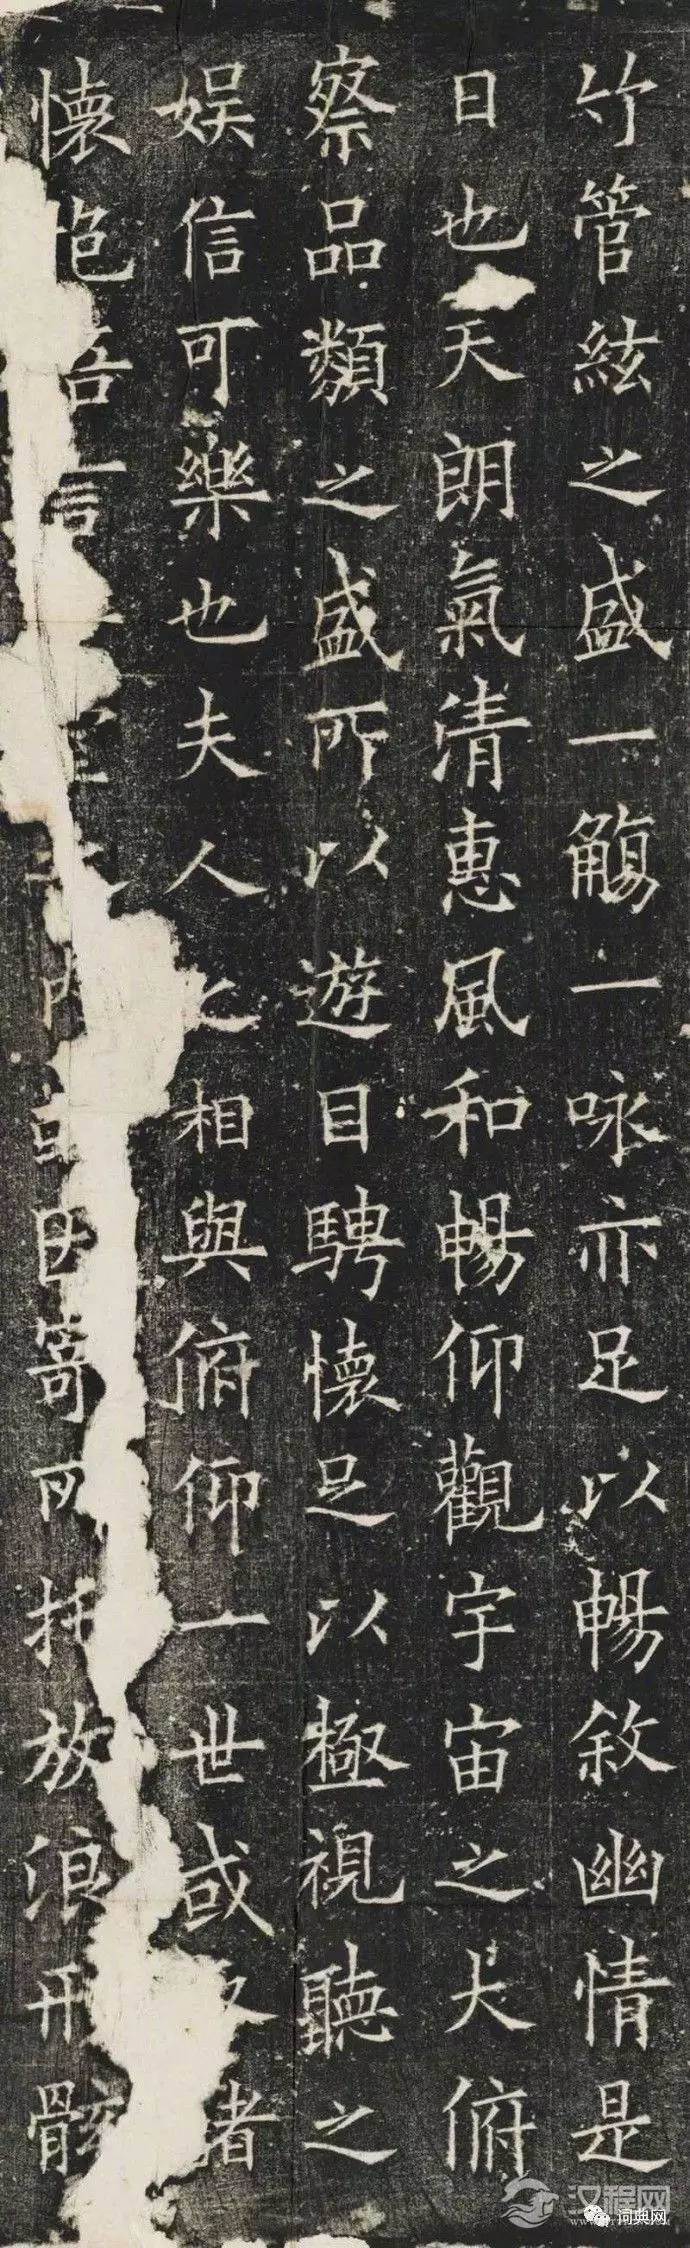 竹管絃之盛一觴一咏亦足以暢敘幽情是
日也天朗氣清惠風和暢仰觀宇宙之大俯
察品類之盛所以遊目騁懷足以極視聽之
娛信可樂也夫人之相與俯仰一世或諸
懷抱言內或因寄所托放浪形骸
汉程网
词典网